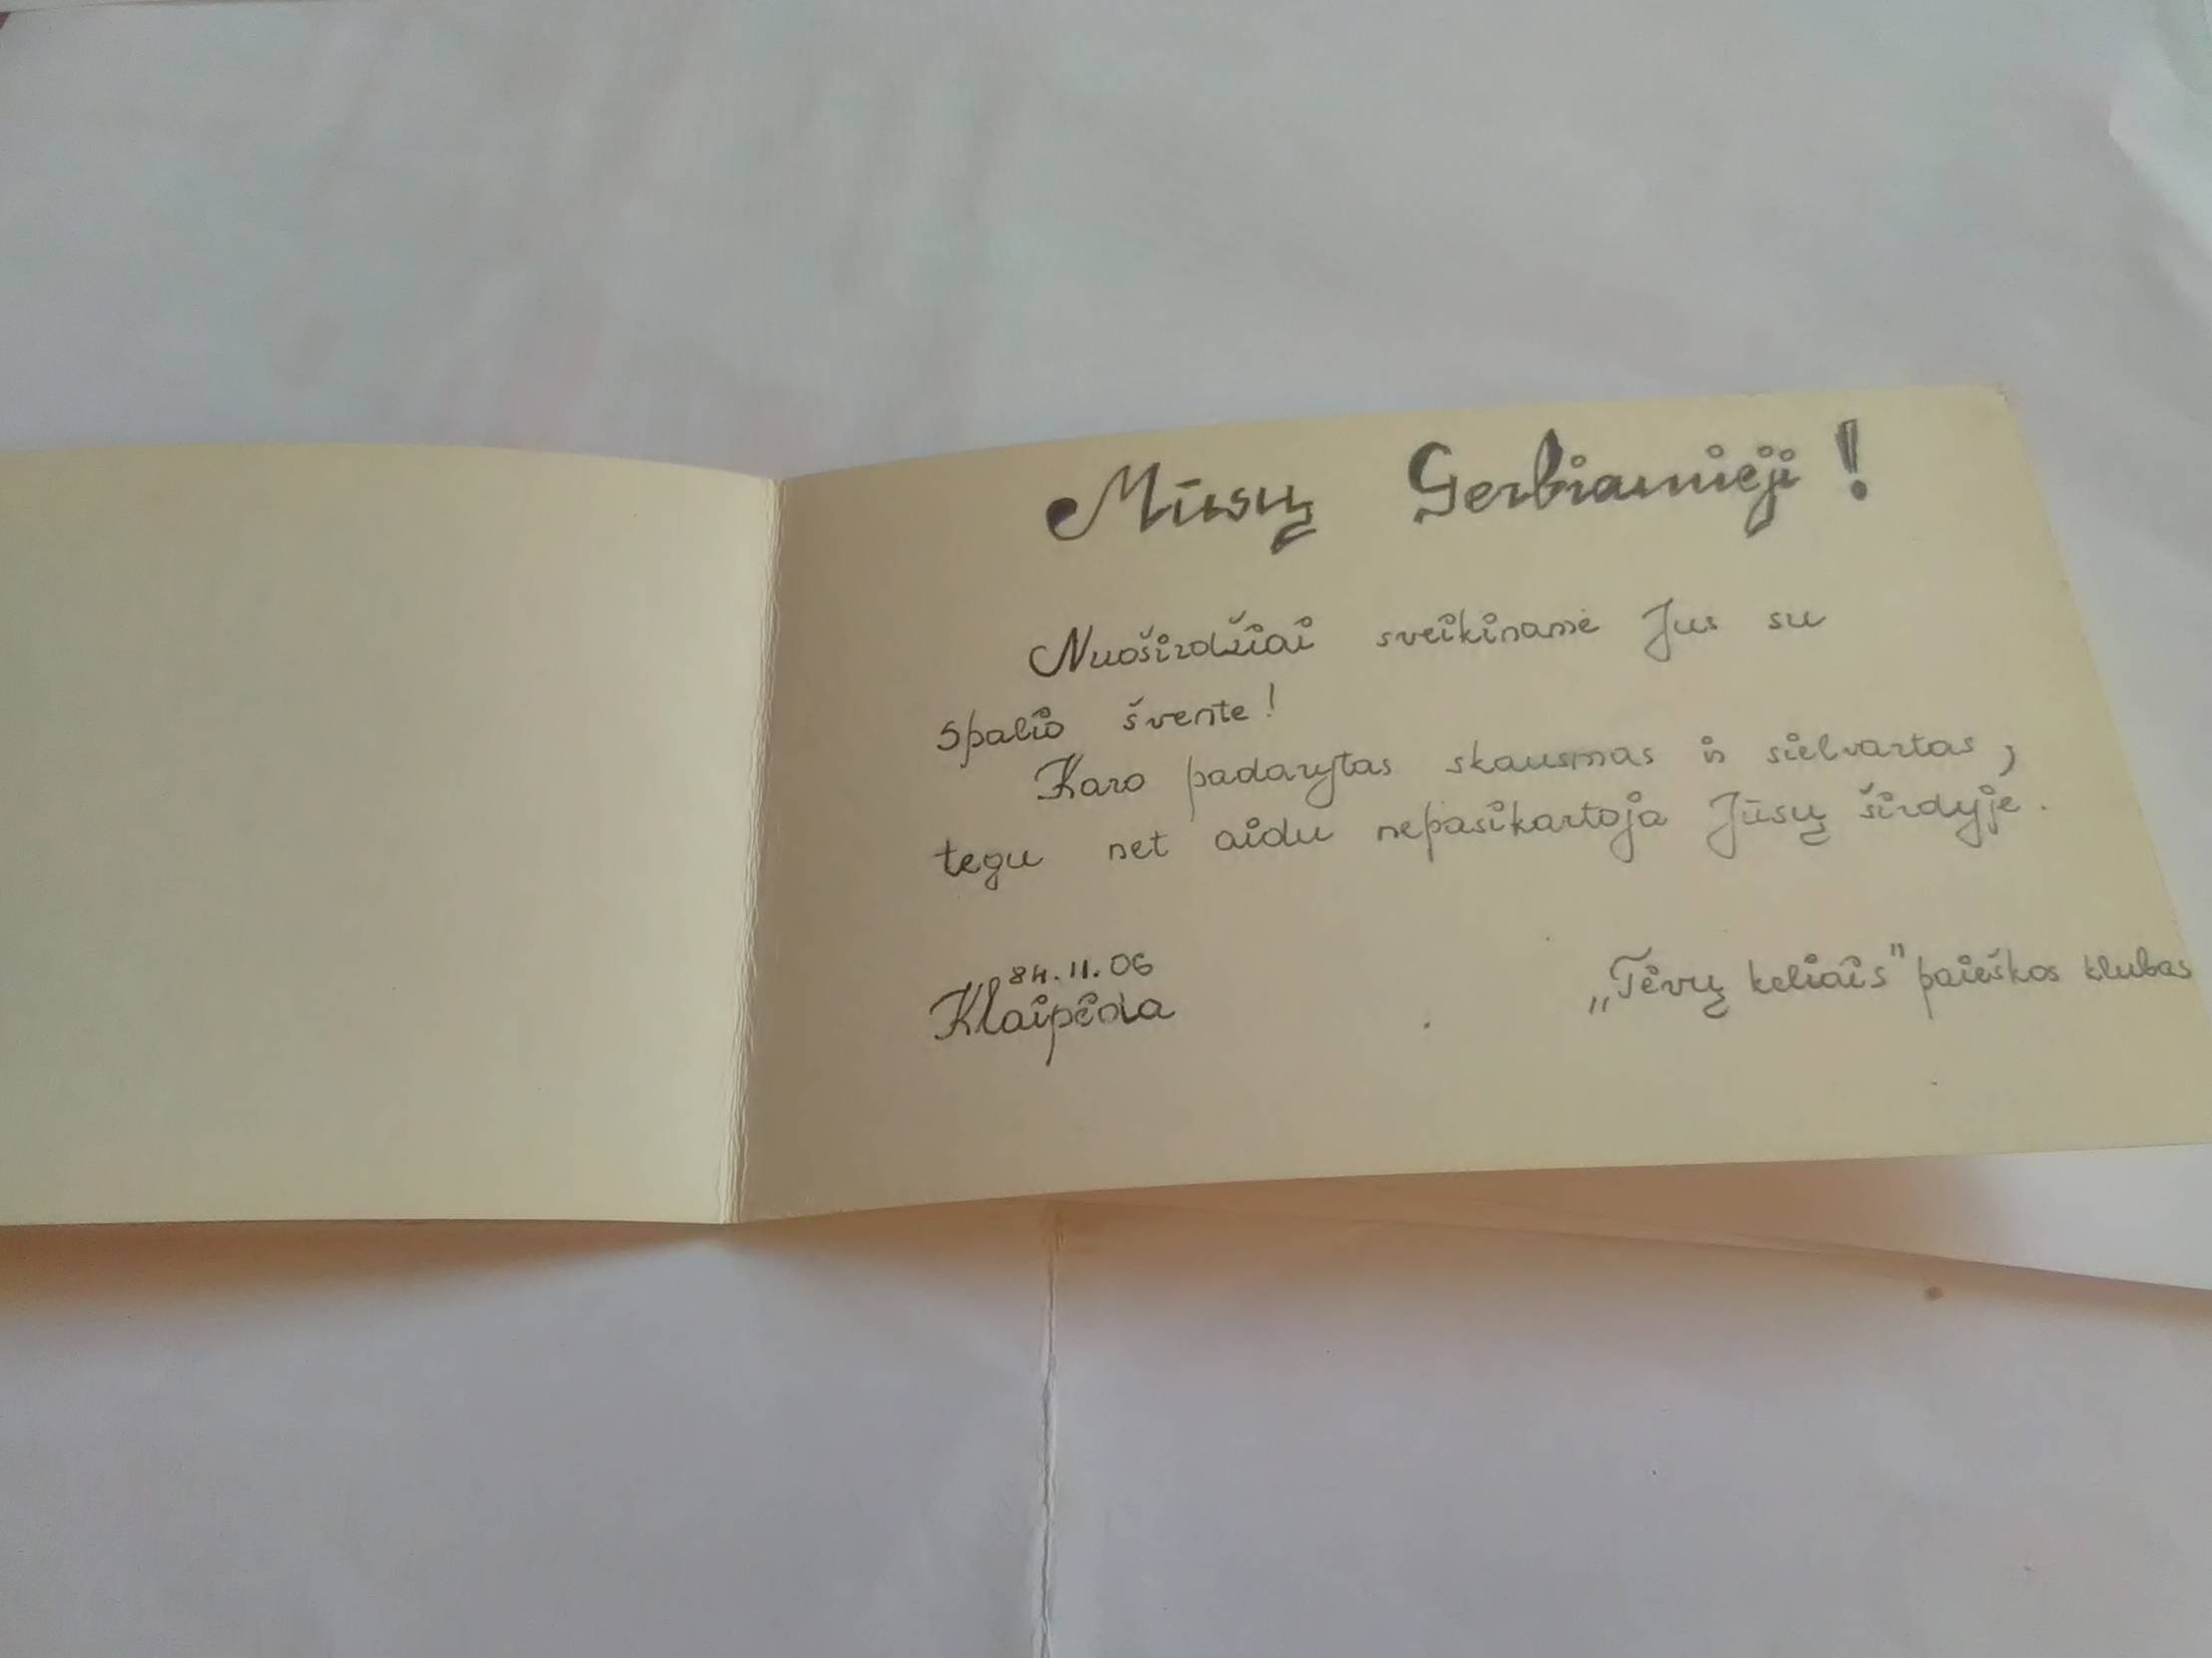 Mūsų Gerbiamieji!
Nuoširdžiai sveikiname Jus su
Spalio švente!
Karo padarytas skausmas ir sielvartas,
tegu net aidu nepasikartoja Jūsų širdyje.
84.11.06
Klaipėda
„Tėvų keliais" paieškos klubas